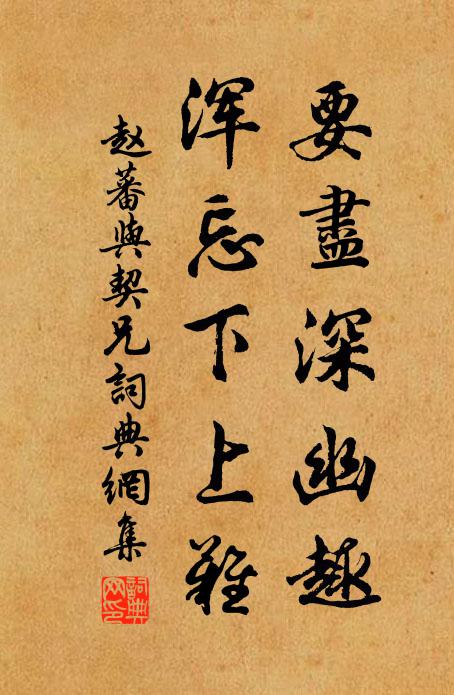 要盡深幽趣
浑忘下上難
赵蕃與契兄詞典網集
詞典网印